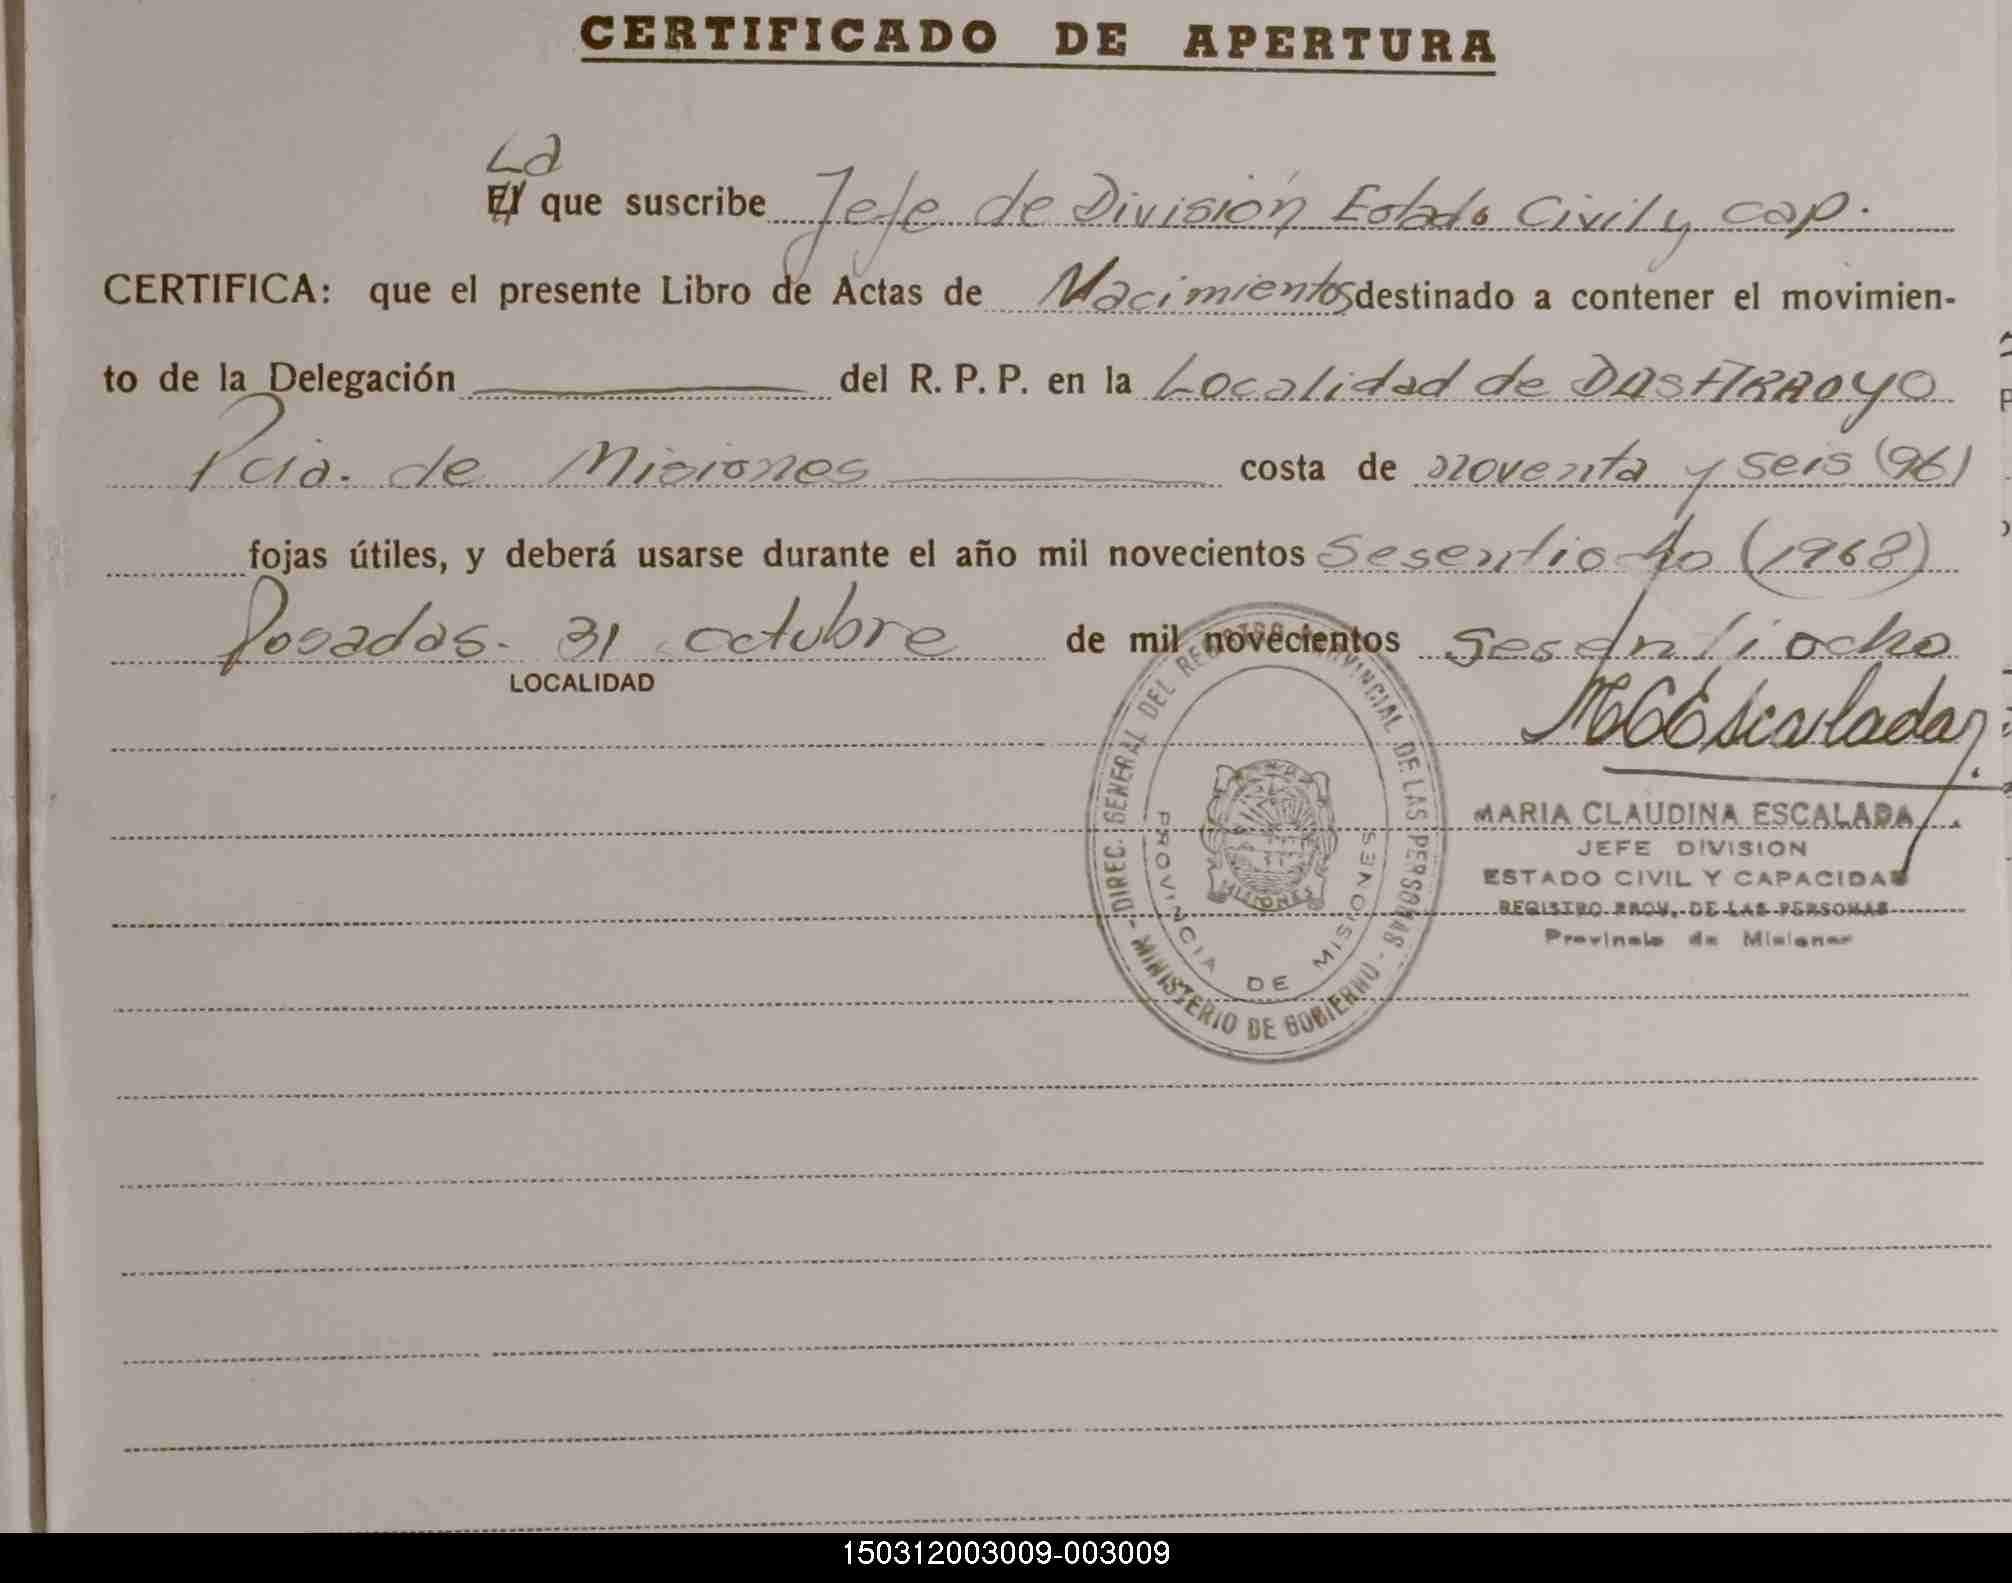 CERTIFICADO DE APERTURA
La
El que suscribe Jefe de División Estado Civil y cap.
CERTIFICA: que el presente Libro de Actas de Nacimientos destinado a contener el movimien-
to de la Delegación del R. P. P. en la Localidad de DOS ARROYO
Pcia. de Misiones costa de noventa y seis (96)
fojas útiles, y deberá usarse durante el año mil novecientos Sesentiocho (1968)
Posadas. 31 octubre de mil novecientos Sesentiocho
LOCALIDAD
MCEscalada
MARIA CLAUDINA ESCALADA
JEFE DIVISION
ESTADO CIVIL Y CAPACIDAD
REGISTRO PROV. DE LAS PERSONAS
Provincia de Misiones
DIREC. GENERAL DEL REGISTRO PROVINCIAL DE LAS PERSONAS - MINISTERIO DE GOBIERNO -
PROVINCIA DE MISIONES
MISIONES
150312003009-003009